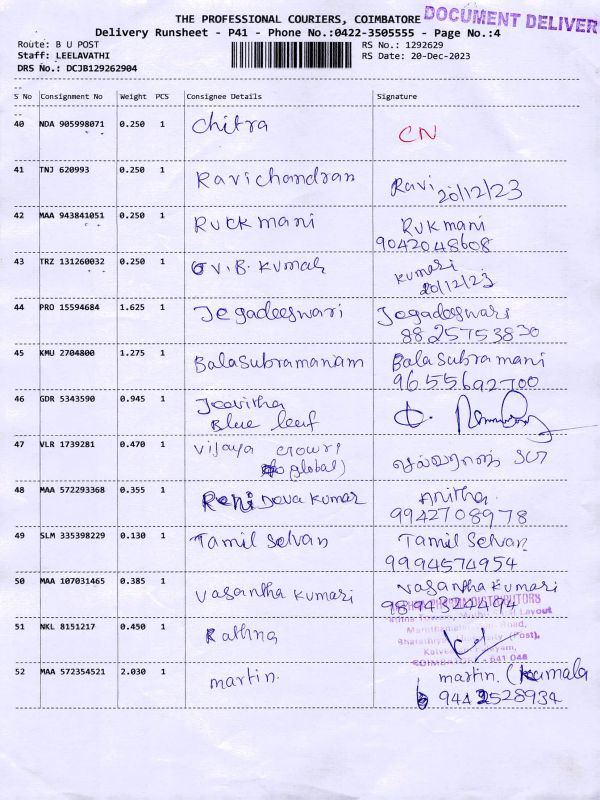 THE PROFESSIONAL COURIERS, COIMBATORE
DOCUMENT DELIVER
Delivery Runsheet - P41 - Phone No.:0422-3505555 - Page No.:4
Route: B U POST
RS No.: 1292629
Staff: LEELAVATHI
RS Date: 20-Dec-2023
DRS No.: DCJB129262904
S No Consignment No Weight PCS Consignee Details Signature
40 NDA 905998071 0.250 1 Chitra CN
41 TNJ 620993 0.250 1 Ravichandran Ravi
20/12/23
42 MAA 943841051 0.250 1 Ruckmani Rukmani
9042048608
43 TRZ 131260032 0.250 1 V.B. Kumar Kumari
20/12/23
44 PRO 15594684 1.625 1 Jegadeeswari Jegadeeswari
8825753830
45 KMU 2704800 1.275 1 Balasubramaniam Balasubramani
9655692700
46 GDR 5343590 0.945 1 Jeevitha
Blue leaf
47 VLR 1739281 0.470 1 Vijaya Gowri
global)
48 MAA 572293368 0.355 1 Reni Deva Kumar Anitha
9942708978
49 SLM 335398229 0.130 1 Tamil Selvan Tamil Selvan
9994574954
50 MAA 107031465 0.385 1 Vasantha Kumari Vasantha Kumari
9894324494
DISTRIBUTORS
Layout
Road,
(Post),
51 NKL 8151217 0.450 1 Rathna
COIMBATORE - 641 046
52 MAA 572354521 2.030 1 martin. martin. (Kumala
9442528934